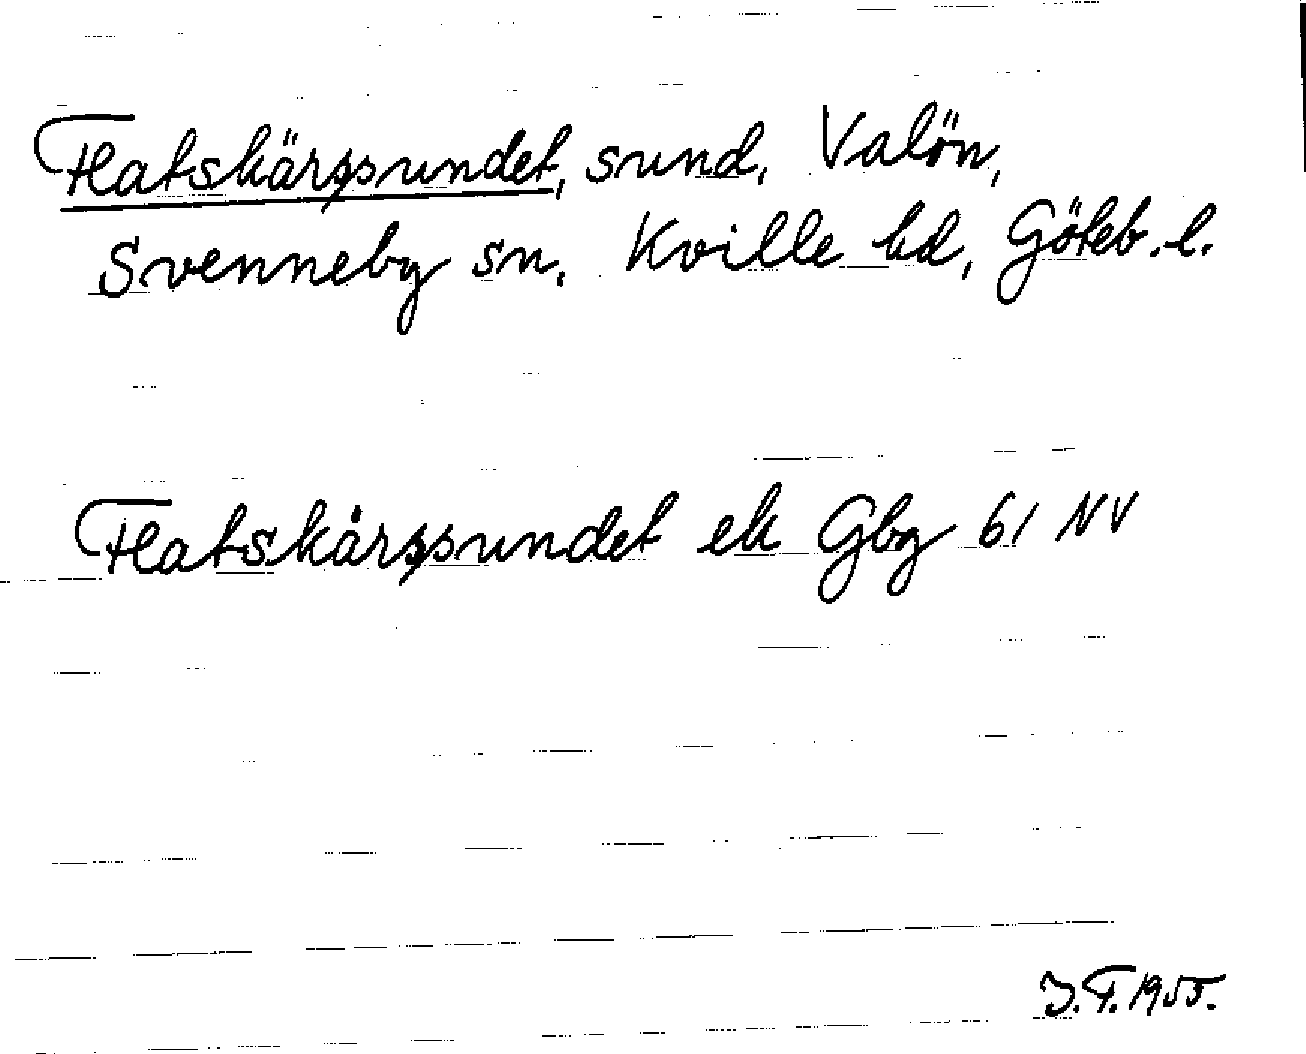 Flatskärssundet, sund, Valön,
Svenneby sn. Kville hd, Göteb. l.
Flatskärssundet ek Gbg 61 NV
J.F. 1955.